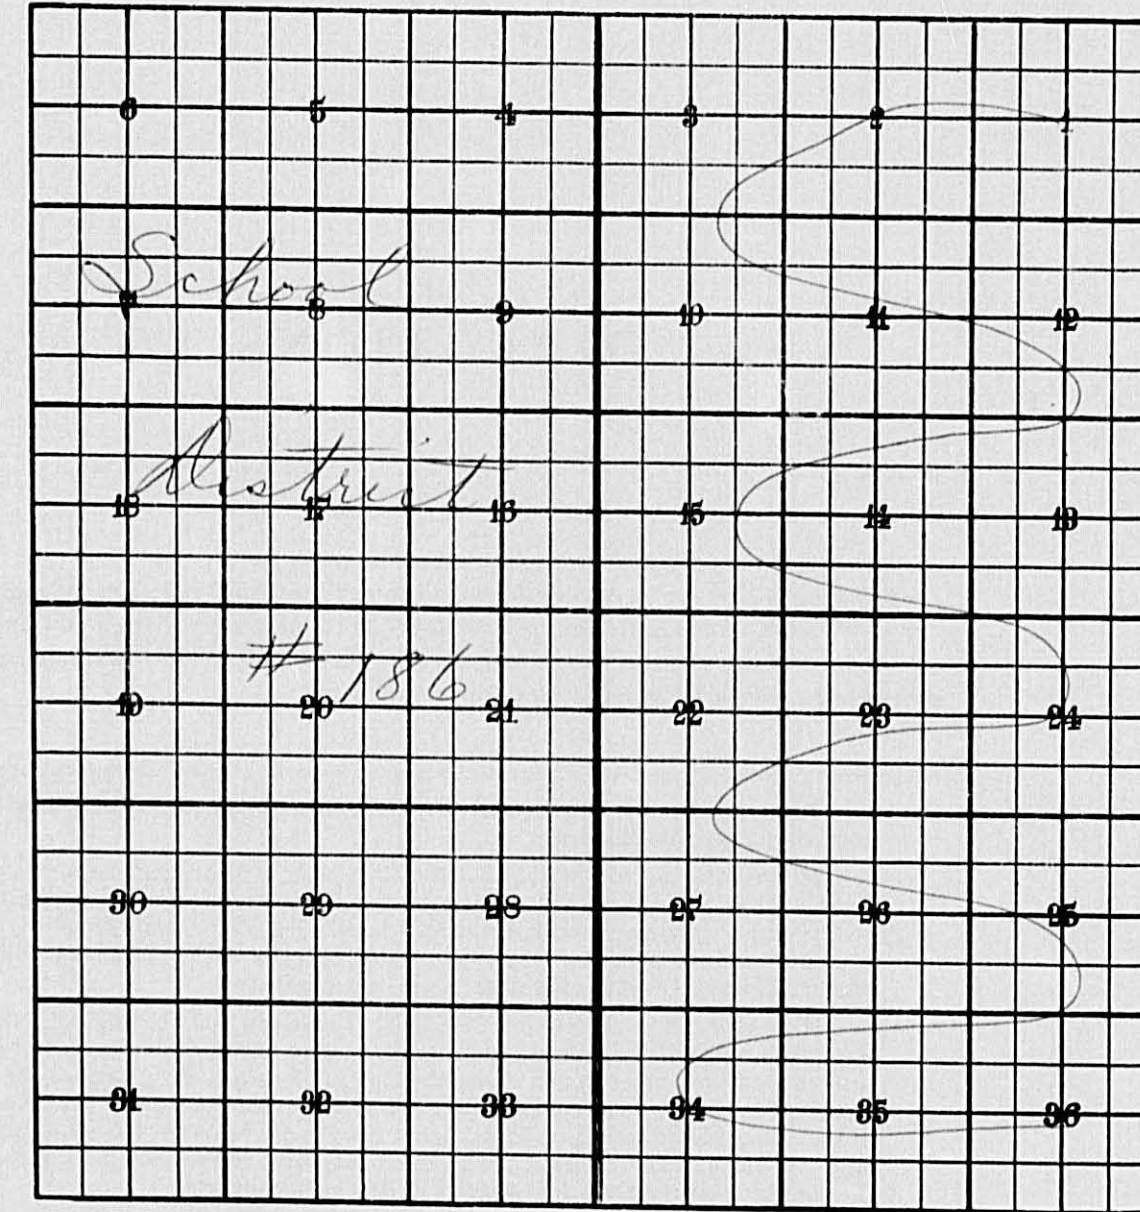 6 5 4 3 2 1
School
7 8 9 10 11 12
District
18 17 16 15 14 13
# 186
19 20 21 22 23 24
30 29 28 27 26 25
31 32 33 34 35 36